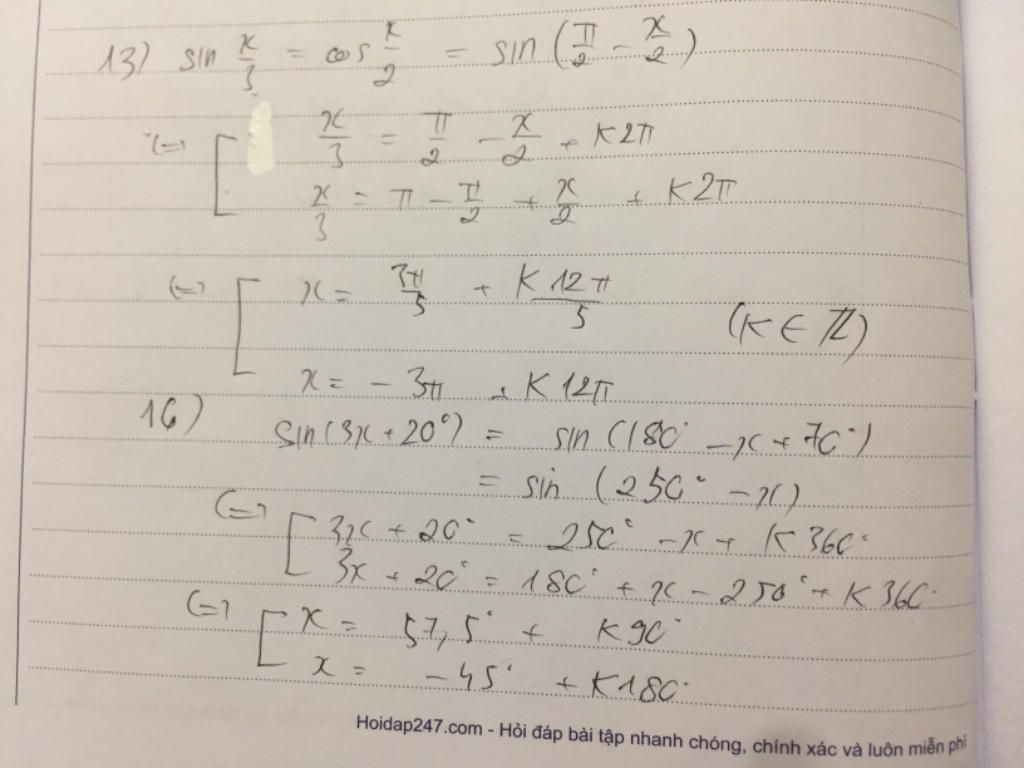 13) sin x/3 = cos x/2 = sin (π/2 - x/2)
(=) [ x/3 = π/2 - x/2 + K2π
x/3 = π - π/2 + x/2 + K2π
(=) [ x = 3π/5 + K12π/5
(K ∈ Z)
x = - 3π + K12π
16)
sin(3x + 20°) = sin (180° - x + 70°)
= sin (250° - x)
(=) [ 3x + 20° = 250° - x + K360°
3x + 20° = 180° + x - 250° + K360°
(=) [ x = 57,5° + K90°
x = - 45° + K180°
Hoidap247.com - Hỏi đáp bài tập nhanh chóng, chính xác và luôn miễn phí